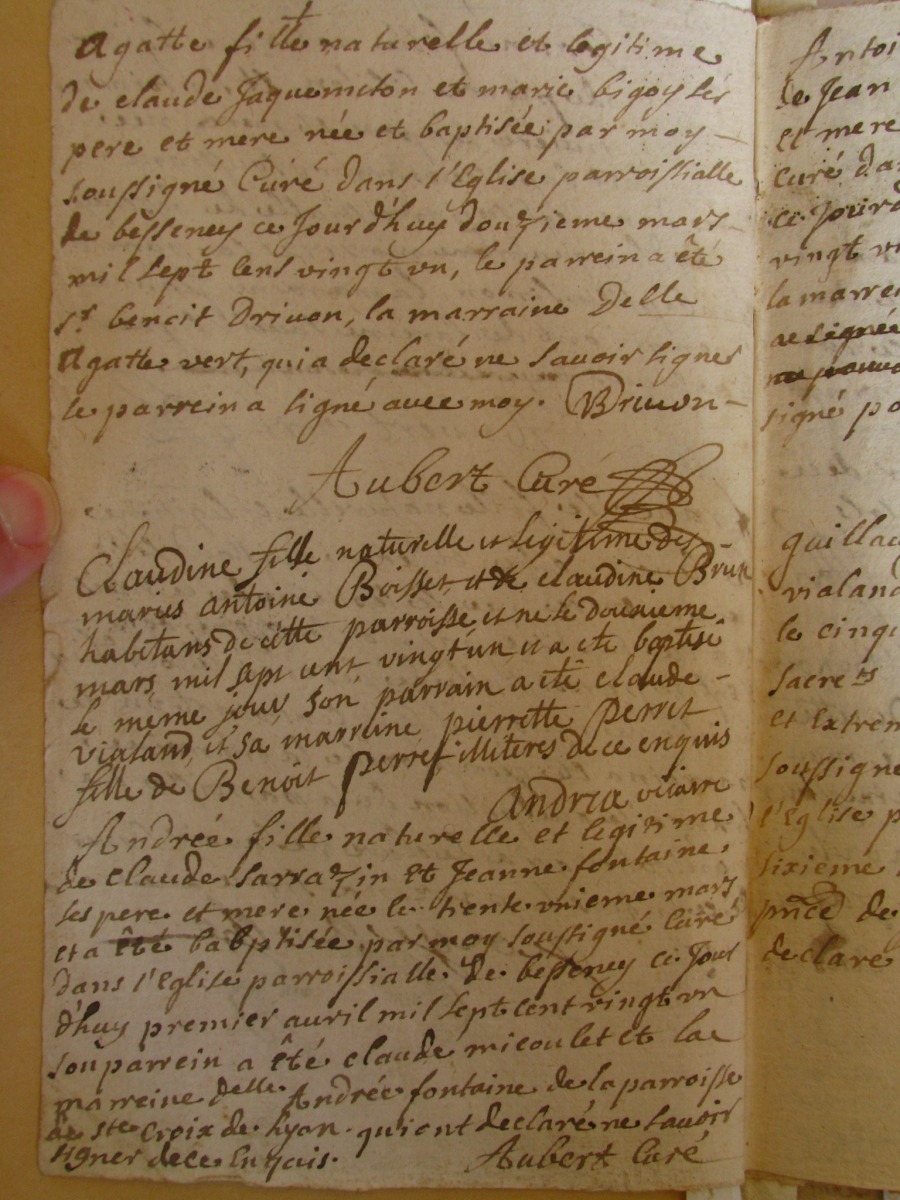 Agatte fille naturelle et legitime
de claude Jaquemeton et marie bigoy ses
pere et mere née et baptisée par moy
soussigné Curé dans l'Eglise parroissialle
de besseney ce Jourd'huy douzieme mars
mil sept cens vingt vn, le parrein a été
Sr. benoit Driuon, la marraine Delle
Agatte vert, qui a declaré ne sauoir signer
le parrein a signé auec moy. Driuon
Aubert Curé
Claudine fille naturelle et legitime de
marius antoine Boisset et de claudine Brun
habitans de cette parroisse et ne le douxieme
mars mil sept cent vingt un et a ete baptisé
le même jour son parrain a été claude
vialand et sa marreine pierrette perret
fille de Benoit perret illiteres de ce enquis
Andrea vicaire
Andrée fille naturelle et legitime
de claude Sarrazin et Jeanne fontaine
ses pere et mere née le trente vnieme mars
et a été babptisée par moy soussigné Curé
dans l'Eglise parroissialle de besseney ce Jour
d'huy premier auril mil sept cent vingt vn
son parrein a été claude micoulet et la
marreine delle Andrée fontaine de la parroisse
de Ste Croix de Lyon qui ont declaré ne sauoir
signer de ce Enquis.
Aubert Curé
Antoi
de Jean
et mere
curé da
ce jourd
vingt vn
la marre
signé pa
guillau
vialand
le cinqu
sacrets
et Extrem
soussigne
l'Eglise p
sixieme
pnce de
declaré